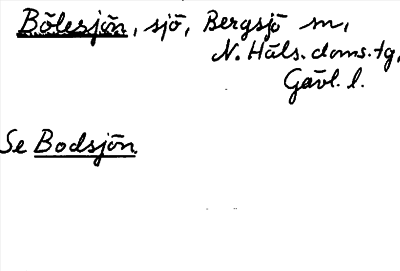 Bölesjön, sjö, Bergsjö sn,
N. Häls. doms. tg,
Gävl. l.
Se Bodsjön